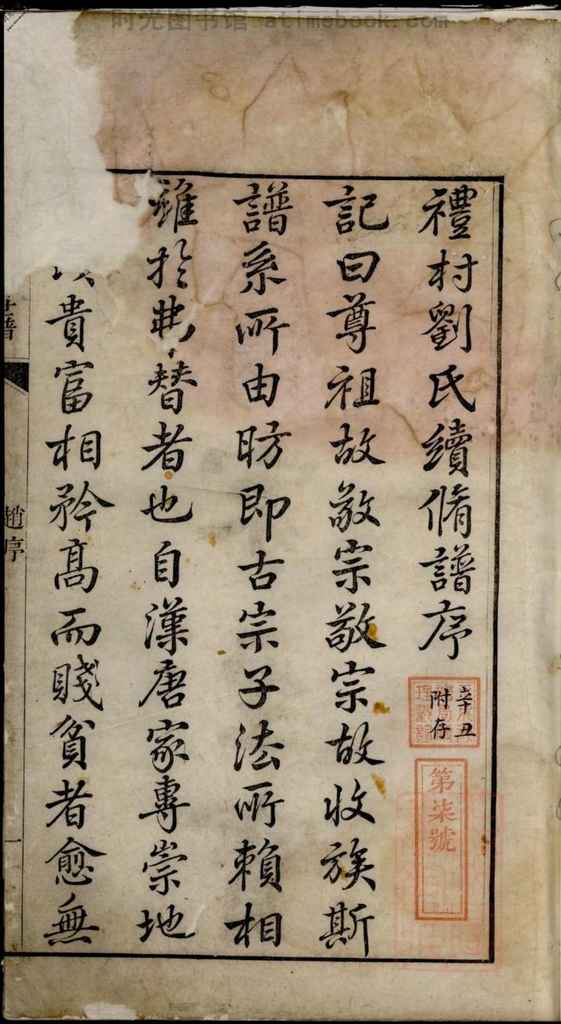 时光图书馆 atimebook.com
禮村劉氏續脩譜序
辛丑
附存
第柒號
記曰尊祖故敬宗敬宗故收族斯
譜系所由昉即古宗子法所賴相
維於替者也自漢唐家專崇地
貴富相矜高而賤貧者愈無
世譜
趙序
一